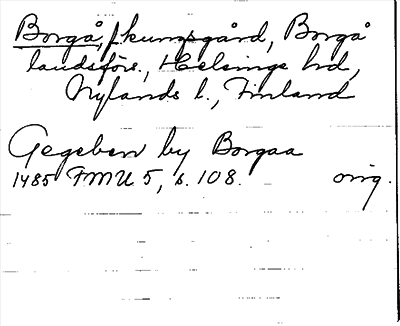 Borgå, kungsgård, Borgå
landsförs., Helsinge hd,
Nylands l., Finland
Gegeben by Borgaa
1485 FMU 5, s. 108. orig.